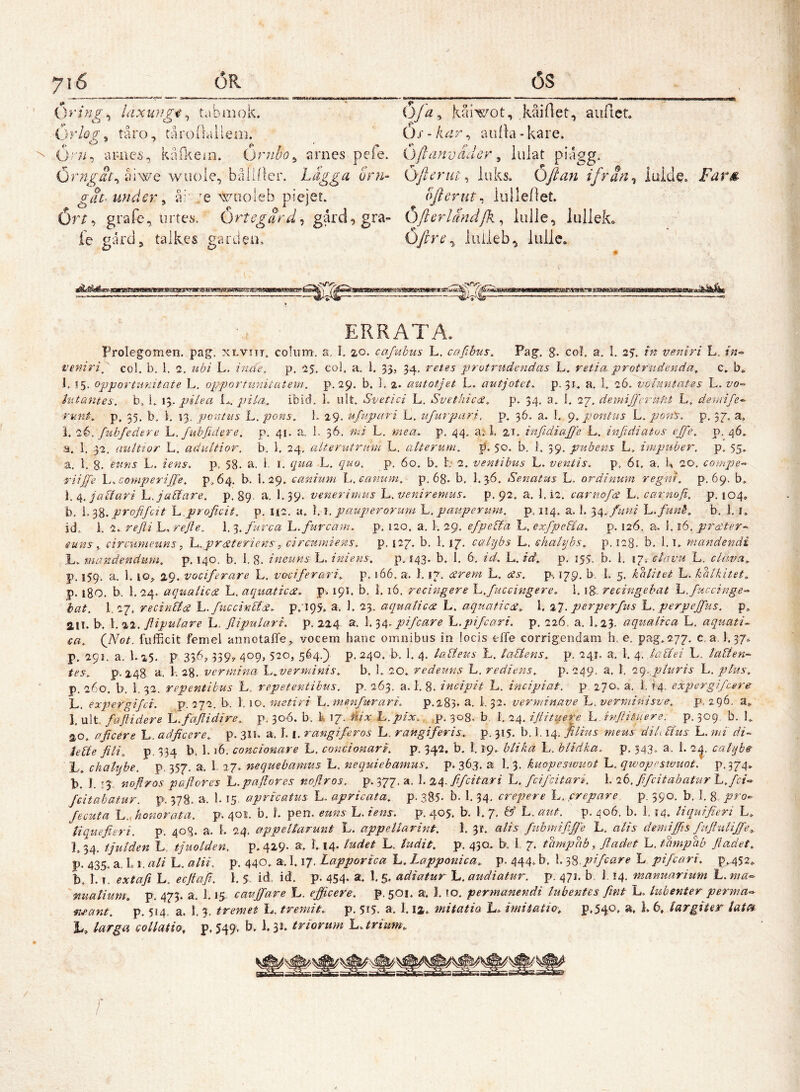 716 ÖR ÖS
Öring, laxunge, tabmok.
Örlog, tåro, tårostallem.
Örn, arnes, kåskem. Örnbo, arnes pese.
Örngåt, åiwe wuole, bålster. Lägga örn-
gåt under, åiwe wuoleb piejet.
Ört, grase, urtes. Örtegård, gård, gra-
se gård, talkes garden.
Ösa, kåiwot, kåistet, austet.
Ös-kar, austa-kare.
Östanväder, lulat piägg.
Österut, luks. Östan ifrån, lulde. Fara
österut, lullestet.
Österländsk, lulle, lullek.
Östre, lulleb, lulle.
ERRATA.
Prolegomen. pag. XLVIII. colum. a. l. 20. casubus L. casibus. Pag. 8. col. a. l. 25. in veniri L. in-
veniri. col. b. l. 2. ubi L. inde. p. 25. col. a. l. 33, 34. retes protrudendas L. retia protrudenda. c. b.
l. 15. opportunitate L. opportunitatem. p. 29. b. l. 2. autotjet L. autjotet. p. 31. a. l. 26. voluntates L. vo-
lutantes. b. l. 13. pilea L. pila. ibid. l. ult. Svetici L. Svethicæ. p. 34. a. l. 27. demisserunt L. demise-
runt. p. 35. b. l. 13. pontus L. pons. l. 29. usupari L. usurpari. p. 36. a. l. 9. pontus L. pons. p. 37. a.
l. 26. subsedere L. subsidere. p. 41. a. l. 36. mi L. mea. p. 44. a. l. 21. insidiasse L. insidiatos esse. p. 46.
a. l. 32. aultior L. adultior. b. l. 24. alterutrum L. alterum. p. 50. b. l. 39. pubens L. impuber. p. 55.
a. l. 8. euns L. iens. p. 58. a. l. 1. qua L. quo. p. 60. b. l. 2. ventibus L. ventis. p. 61. a. l. 20. compe-
riisse L. comperisse. p. 64. b. l. 29. canium L. canum. p. 68. b. l. 36. Senatus L. ordinum regni. p. 69. b.
l. 4. jactari L. jactare. p. 89. a. l. 39. venerimus L. veniremus. p. 92. a. l. 12. carnosæ L. carnosi. p. 104.
b. l. 38. profiscit L. proficit. p. 112. a. l. 1. pauperorum L. pauperum. p. 114. a. l. 34. funi L. funi. b. l. 1.
id. l. 2. resti L. reste. l. 3. furca L. furcam. p. 120. a. l. 29. espectta L. exspecta. p. 126. a. l. 16. præter-
euns, circumeuns, L. præteriens, circumiens. p. 127. b. l. 17. calybs L. chalybs. p. 128. b. l. 1. mandendi
L. mandendum. p. 140. b. l. 8. ineuns L. iniens. p. 143. b. l. 6. id. L. id. p. 155. b. l. 17. clavu L. clava.
p. 159. a. l. 10, 29. vociferare L. vociferari. p. 166. a. l. 17. ærem L. æs. p. 179. b. l. 5. kålitet L. kålkitet.
p. 180. b. l. 24. aqualicæ L. aquaticæ. p. 191. b. l. 16. recingere L. succingere. l. 18. recingebat L. succinge-
bat. l. 27. recinctæ L. succinctæ. p. 195. a. l. 23. aqualicæ L. aquaticæ. l. 27. perperfus L. perpessus. p.
211. b. l. 22. stipulare L. stipulari. p. 224. a. l. 34. piscare L. piscari. p. 226. a. l. 23. aqualica L. aquati-
ca. (Not. sufficit semel annotasse, vocem hanc omnibus in locis esse corrigendam h. e. pag. 277. c. a. l. 37.
p. 291. a. l. 25. p. 336, 339, 409, 520, 564.) p. 240. b. l. 4. lacteus L. lactens. p. 241. a. l. 4. lactei L. lacten-
tes. p. 248. a. l. 28. vermina L. verminis. b. l. 20. redeuns L. rediens. p. 249. a. l. 29. pluris L. plus.
p. 260. b. l. 32. repentibus L. repetentibus. p. 263. a. l. 8. incipit L. incipiat. p. 270. a. l. 14. expergiscere
L. expergisci. p. 272. b. l. 10. metiri L. mensurari. p. 283. a. l. 32. verminave L. verminisve. p. 296. a.
l. ult. fastidere L. fastidire. p. 306. b. l. 17. nix L. pix. p. 308. b. l. 24. istituere L. instituere. p. 309. b. l.
20. aficere L. adficere. p. 311. a. l. 1. rangiferos L. rangiferis. p. 315. b. l. 14. filius meus dilectus L. mi di-
lecte fili. p. 334. b. l. 16. concionare L. concionari. p. 342. b. l. 19. blika L. blidka. p. 343. a. l. 24. calybe
L. chalybe. p. 357. a. l. 27. nequebamus L. nequiebamus. p. 363. a. l. 3. kuopeswuot L. qwopeswuot. p. 374.
b. l. 13. nostros pastores L. pastores nostros. p. 377. a. l. 24. siscitari L. sciscitari. l. 26. siscitabatur L. sci-
scitabatur. p. 378. a. l. 15. apricatus L. apricata. p. 385. b. l. 34. crepere L. crepare. p. 390. b. l. 8. pro-
secuta L. honorata. p. 401. b. l. pen. euns L. iens. p. 405. b. l. 7. & L. aut. p. 406. b. l. 14. liquifieri L.
liquefieri. p. 408. a. l. 24. appellarunt L. appellarint. l. 31. alis submisisse L. alis demissis sustulisse.
l. 34. tjulden L. tjuolden. p. 429. a. l. 14. ludet L. ludit. p. 430. b. l. 7. tåmpåb, stadet L. tåmpåb stadet.
p. 435. a. l. 1. ali L. alii. p. 440. a. l. 17. Lapporica L. Lapponica. p. 444. b. l. 38. piscare L piscari. p. 452.
b. l. 1. extasi L. ecstasi. l. 5. id. id. p. 454. a. l. 5. adiatur L. audiatur. p. 471. b. l. 14. manuarium L. ma-
nualium. p. 473. a. l. 15. causfare L. efficere. p. 501. a. l. 10. permanendi lubentes sint L. lubenter perma-
neant. p. 514. a. l. 3. tremet L. tremit. p. 515. a. l. 12. mitatio L. imitatio. p. 540. a. l. 6. largiter lata
L. larga collatio. p. 549. b. l. 31. triorum L. trium.